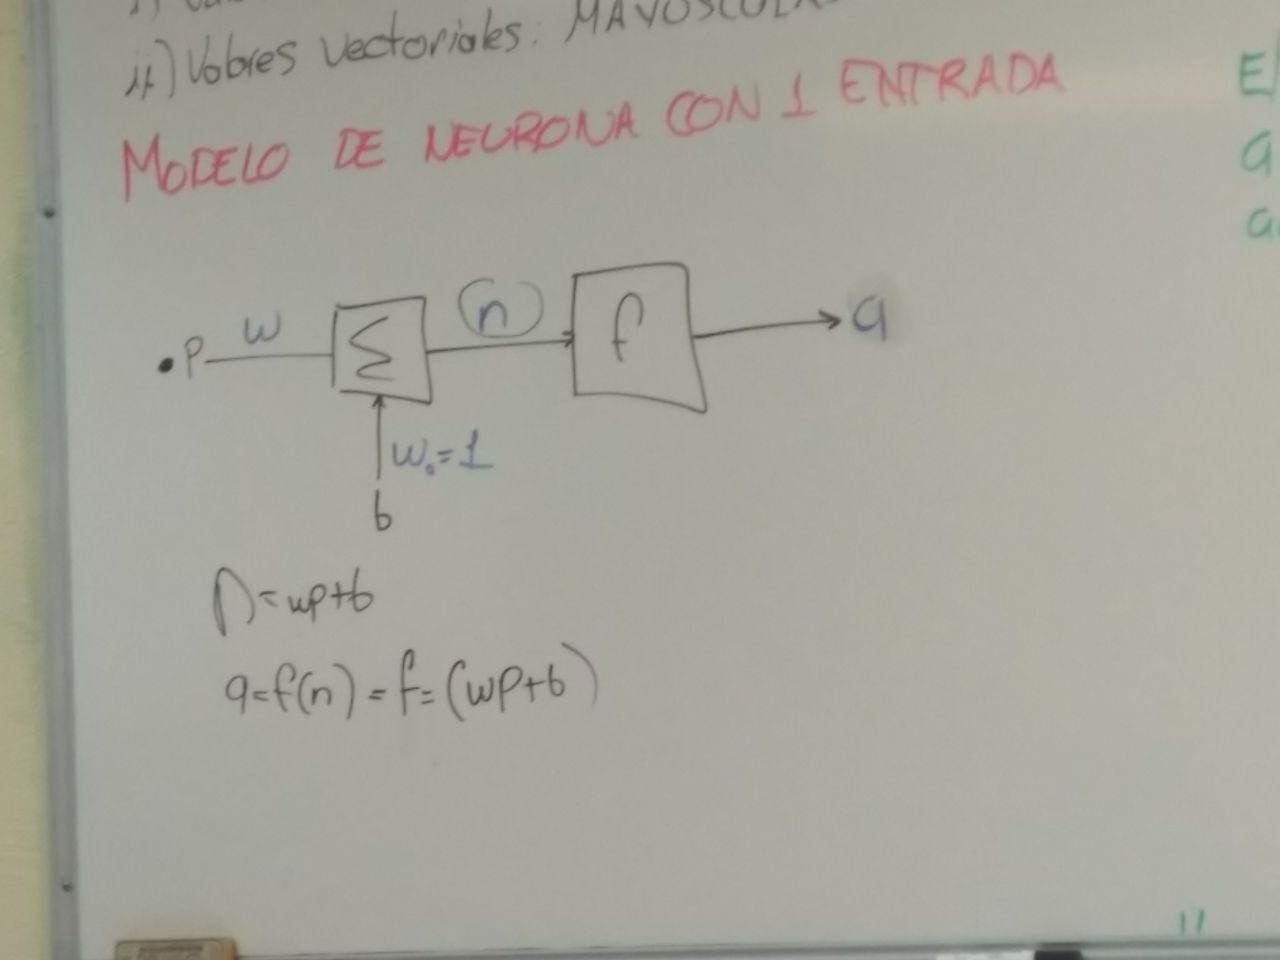 ii) Valores vectoriales: MAYÚSCULA
MODELO DE NEURONA CON 1 ENTRADA
• P w Σ n f a
W₀=1
b
n=wp+b
a=f(n) = f=(wp+b)
E
a
a
11